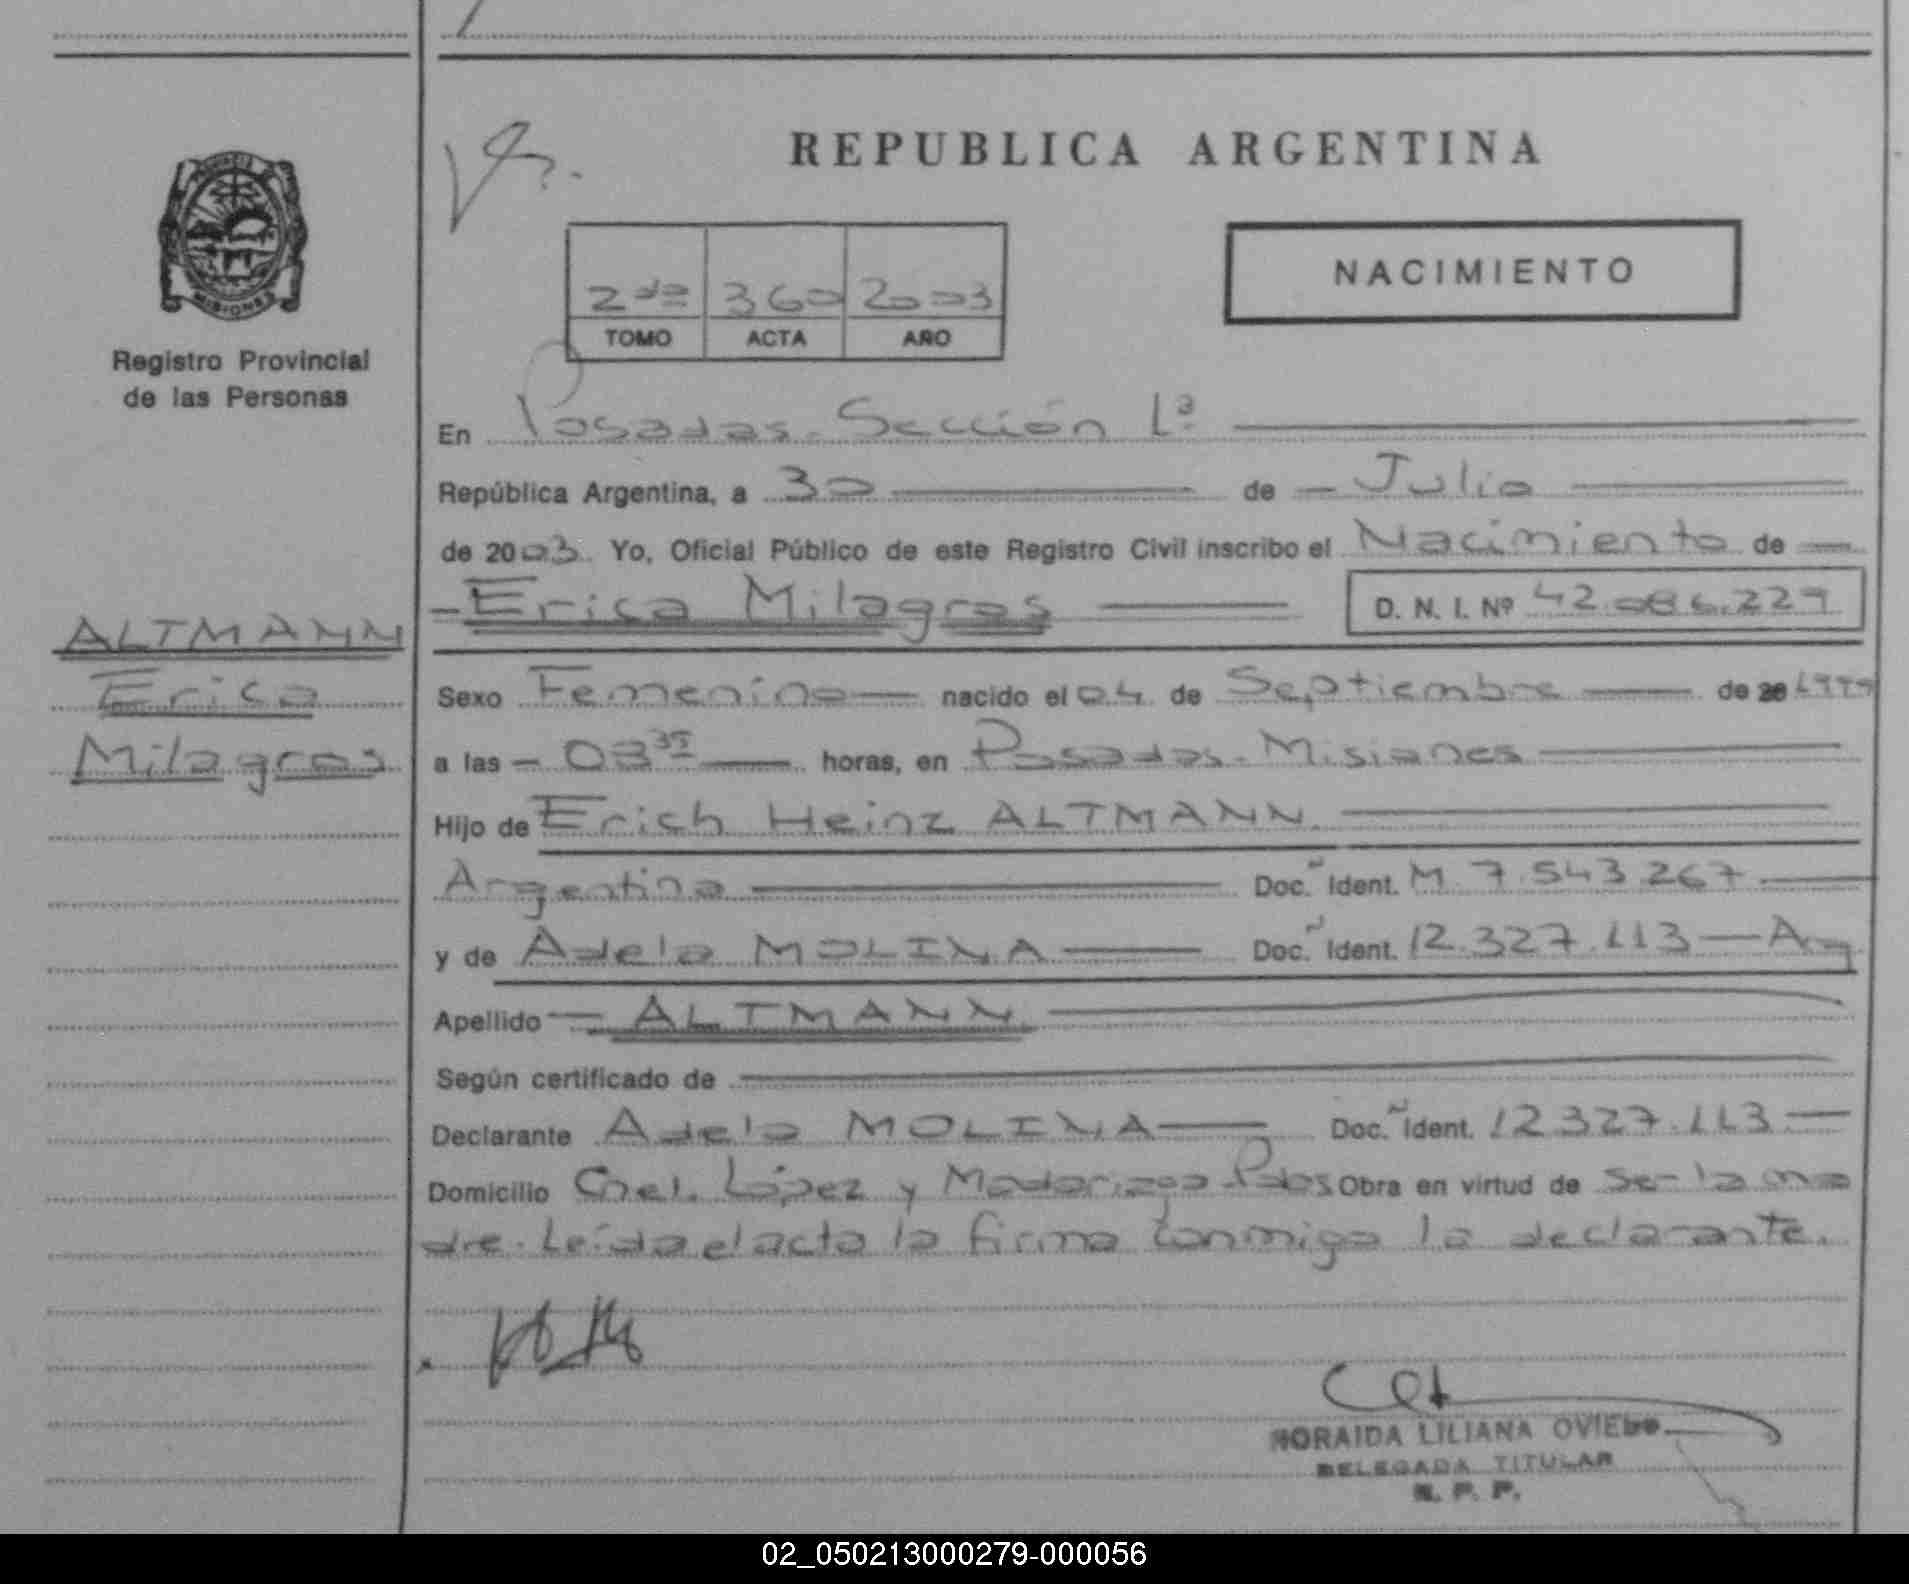 REPUBLICA ARGENTINA
NACIMIENTO
2da 360 2003
TOMO ACTA AÑO
PROVINCIA
MISIONES
Registro Provincial
de las Personas
ALTMANN
Erica
Milagros
En Posadas. Sección 1ª
República Argentina, a 30 de Julio
de 2003 Yo, Oficial Público de este Registro Civil inscribo el Nacimiento de
Erica Milagros D. N. I. Nº 42.086.229
Sexo Femenino nacido el 04 de Septiembre de 20 1999
a las 03 35 horas, en Posadas. Misiones
Hijo de Erich Heinz ALTMANN.
Argentina Doc. Ident. M. 7.543.267
y de Adela MOLINA Doc. Ident. 12.327.113 — Arg
Apellido ALTMANN
Según certificado de
Declarante Adela MOLINA Doc. Ident. 12.327.113
Domicilio Cnel. López y Madariaga Pdas Obra en virtud de ser la ma
dre. Leída el acta la firma conmigo la declarante.
NORAIDA LILIANA OVIEDO
DELEGADA TITULAR
R. P. P.
02_050213000279-000056